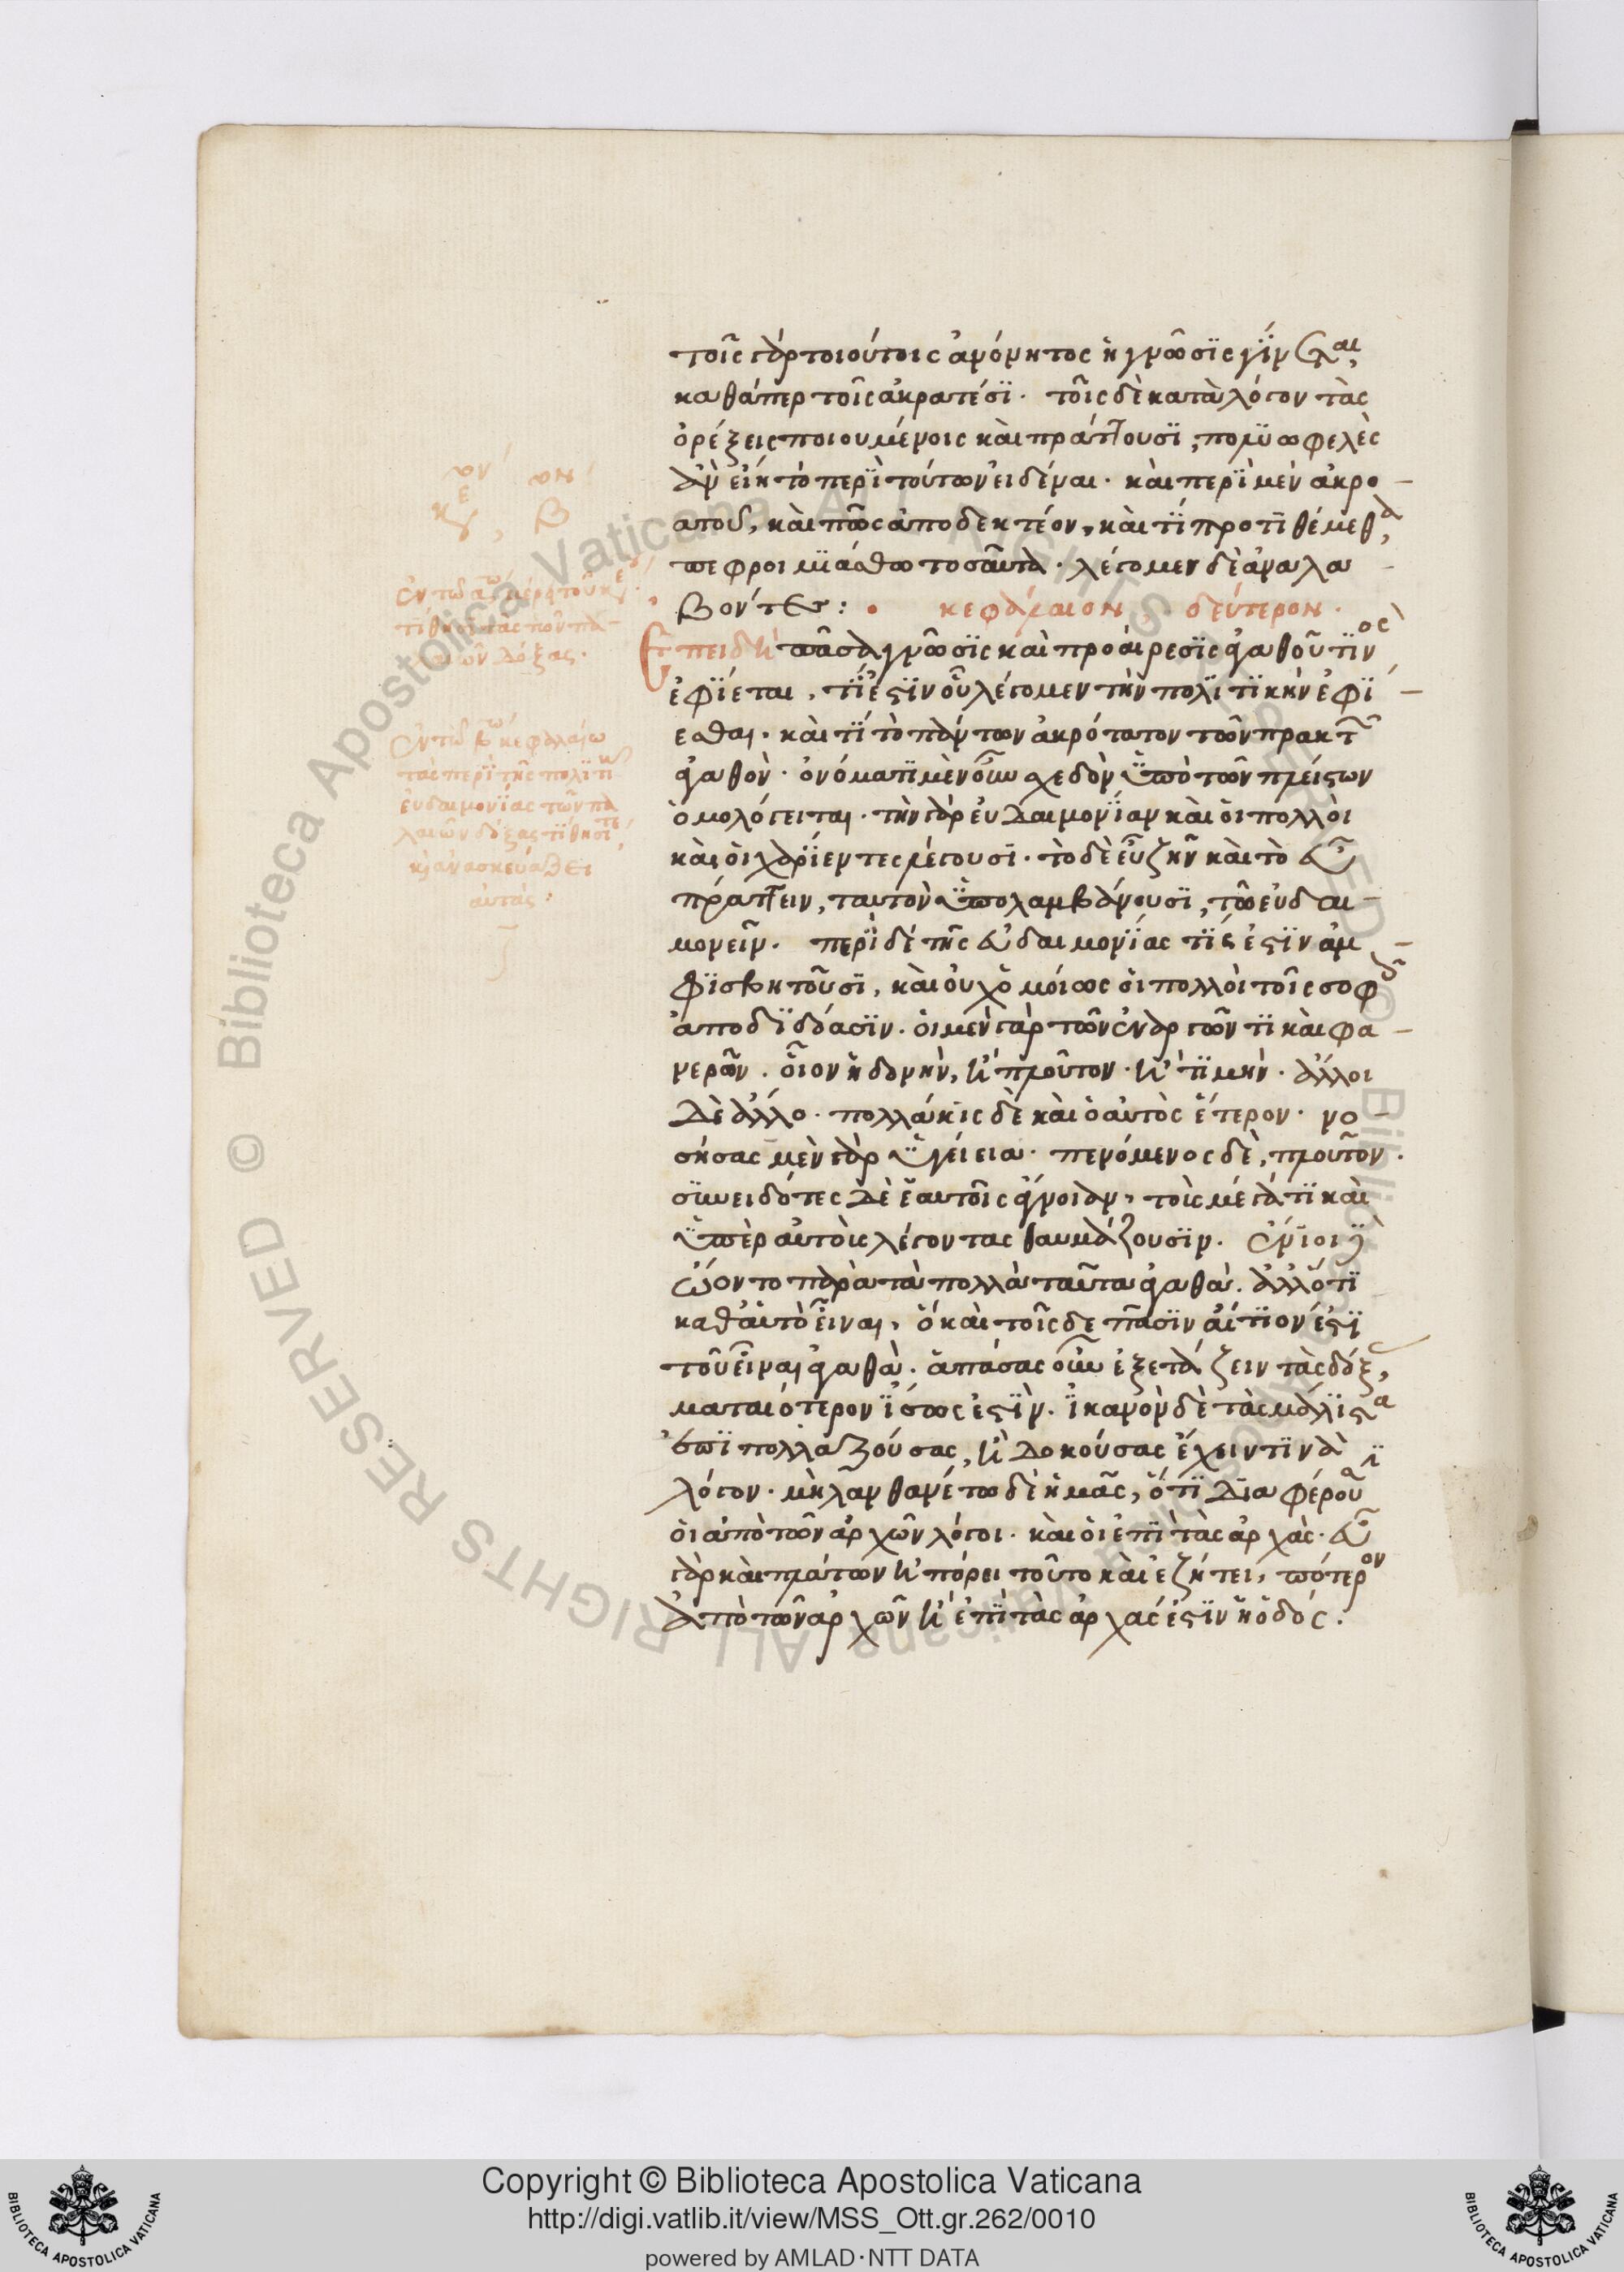 τοῖς γὰρ τοιούτοις ἀνόνητος ἡ γνῶσϊς γΐνεται,
καθάπερ τοῖς ἀκρατέσϊ. τοῖς δὲ κατὰ λόγον τὰς
ὀρέξεις ποιουμένοις καὶ πράττουσϊ, πολϋωφελὲς
ἂν εἴη τὸ περῒ τούτων εἰδέναι. καὶ περῒ μὲν ἀκρο-
ατοῦ, καὶ πῶς ἀποδεκτέον, καὶ τΐ προτϊθέμεθα,
πεφροιμϊάσθω τοσαῦτα. λέγομεν δὲ ἀναλα-
βόντες: • κεφάλαιον, δεύτερον.
Ἐπειδὴ πᾶσα γνῶσϊς καὶ προαίρεσϊς ἀγαθοῦ τϊνὸς
ἐφΐεται, τΐ ἐστϊν οὗ λέγομεν τὴν πολϊτϊκὴν ἐφΐ-
εσθαι. καὶ τΐ τὸ πάντων ἀκρότατον τῶν πρακτῶν
ἀγαθὸν. ὀνόματϊ μὲν οὖν σχεδὸν ϋπὸ τῶν πλείστων
ὁμολόγειται. τὴν γὰρ εὐδαιμονΐαν καὶ οἱ πολλοὶ
καὶ οἱ χαρΐεντες λέγουσϊ. τὸ δὲ εὖ ζῆν καὶ τὸ εὖ
πράττειν, ταυτὸν ϋπολαμβάνουσϊ, τῶ εὐδαι-
μονεῖν. περῒ δὲ τῆς εὐδαιμονΐας τΐς ἐστϊν ἀμ-
φϊσβητοῦσϊ, καὶ οὐχ ὁμοίως οἱ πολλοὶ τοῖς σοφοῖς
ἀποδϊδόασϊν. οἱ μὲν γὰρ τῶν ἐναργῶν τϊ καὶ φα-
νερῶν. οἷον ἡδονὴν, ἢ πλοῦτον. ἢ τϊμὴν. ἄλλοι
δὲ ἄλλο. πολλάκϊς δὲ καὶ ὁ αὐτὸς ἕτερον. νο-
σήσας μὲν γὰρ ϋγείεια. πενόμενος δὲ, πλοῦτον.
σϋνειδότες δὲ ἑαυτοῖς ἄγνοιαν, τοὺς μέγα τϊ καὶ
ϋπὲρ αὐτοὺς λέγοντας θαυμάζουσϊν. ἔνϊοι δὲ
ὤοντο παρὰ τὰ πολλὰ ταῦτα ἀγαθὰ. ἄλλό τϊ
καθ' αὑτὸ εἶναι, ὃ καὶ τοῖς δε πᾶσϊν αἴτϊον ἐστϊ
τοῦ εἶναι ἀγαθὰ. ἁπάσας οὖν ἐξετάζειν τὰς δόξας,
ματαιότερον ἴσως ἐστϊν. ΐκανὸν δὲ τὰς μάλϊστα
ἐπϊπολλαζούσας, ἢ δοκούσας ἔχειν τϊνὰ
λόγον. μὴ λανθανέτω δὲ ἡμᾶς, ὅτϊ δϊαφέρουσϊ
οἱ ἀπὸ τῶν ἀρχῶν λόγοι. καὶ οἱ ἐπῒ τὰς ἀρχὰς. εὖ
γὰρ καὶ πλάτων ἠπόρει τοῦτο καὶ ἐζήτει, πότερον
ἀπὸ τῶν ἀρχῶν ἢ ἐπῒ τὰς ἀρχάς ἐστϊν ἡ ὁδός.
ἐν τῶ αʹ μέρει τοῦ κε
τΐθησϊ τὰς τῶν πα-
λαιῶν δόξας.
ἐν τῶ β κεφαλαίω
τὰς περῒ τῆς πολϊτϊκῆς
εὐδαιμονΐας τῶν πα
λαιῶν δόξας τΐθησΐ τε,
κὶ ἀνασκευάζει
αὐτάς.
Copyright © Biblioteca Apostolica Vaticana
http://digi.vatlib.it/view/MSS_Ott.gr.262/0010
powered by AMLAD·NTT DATA
BIBLIOTECA APOSTOLICA VATICANA
BIBLIOTECA APOSTOLICA VATICANA
© Biblioteca Apostolica Vaticana ALL RIGHTS RESERVED © Biblioteca Apostolica Vaticana ALL RIGHTS RESERVED